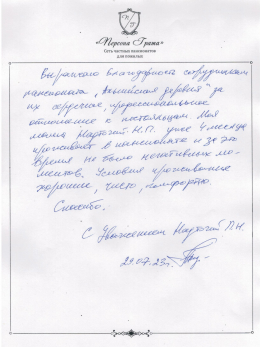 «Подсова Гража»
Сеть частных пансионатов
для пожилых
Выражаю благодарность сотрудникам
пансионата „Альпийская деревня" за
их сердечное, профессиональное
отношение к постояльцам. Моя
мама Надточий Н.П. уже 4 месяца
проживает в пансионате и за это
время не было негативных мо-
ментов. Условия проживания
хорошие, чисто, комфортно.
Спасибо.
С уважением Надточий Л.Н.
29.07.23г.